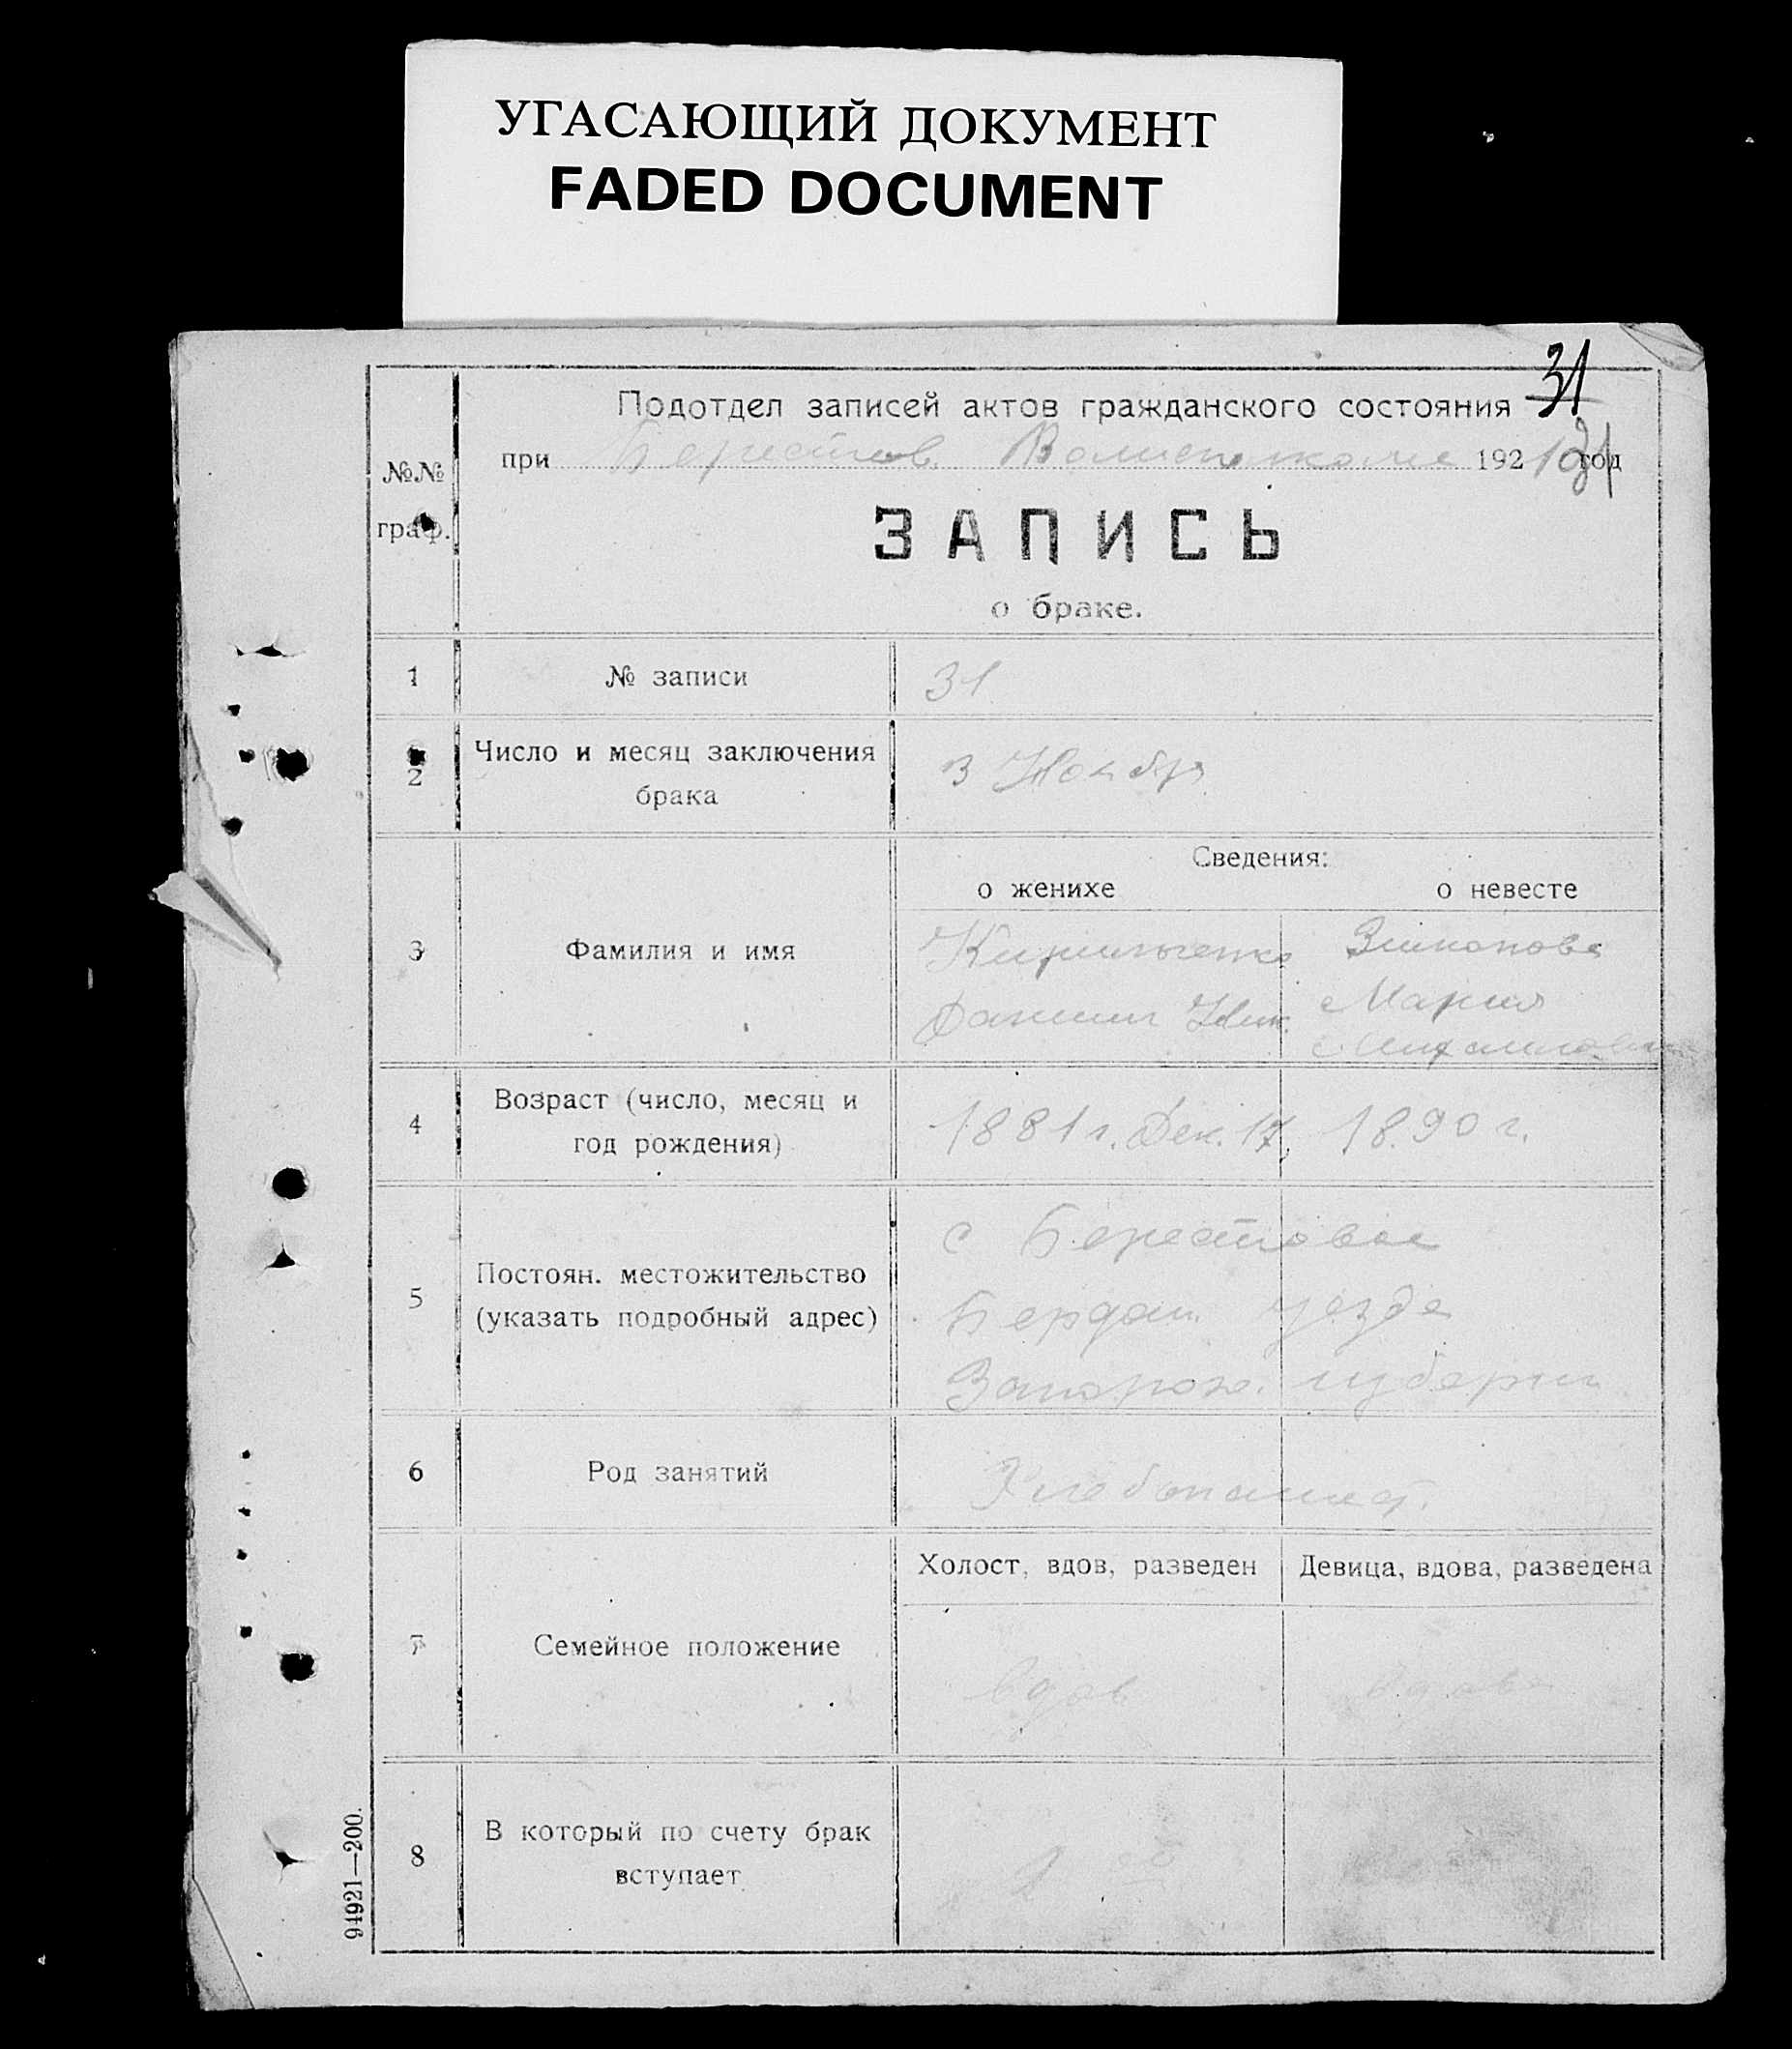 УГАСАЮЩИЙ ДОКУМЕНТ
FADED DOCUMENT
31
Подотдел записей актов гражданского состояния
при Берестов. Волисполкоме 1921 год
№№
граф.
ЗАПИСЬ
о браке.
1 № записи 31
2 Число и месяц заключения
брака
3 Ноября
Сведения:
о женихе о невесте
3 Фамилия и имя
Кирильченко
Даниил Ник.
Мария
Михайловна
4 Возраст (число, месяц и
год рождения)
1881 г. Дек. 17, 1890 г.
5 Постоян. местожительство
(указать подробный адрес)
с Берестовое
Бердян. уезда
Запорож. губернии
6 Род занятий
Хлебопашец.
Холост, вдов, разведен Девица, вдова, разведена
7 Семейное положение
вдов вдова
8 В который по счету брак
вступает
2
94921—200.